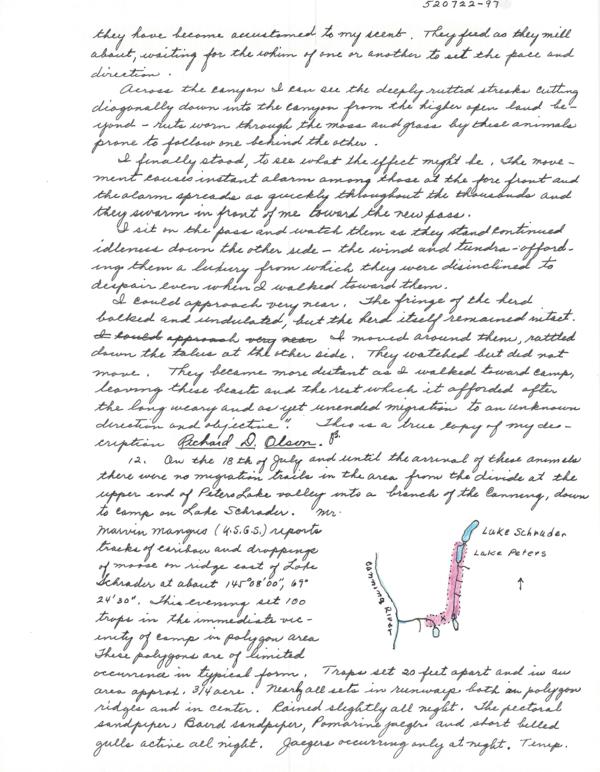 520722-97
they have become accustomed to my scent. They feed as they mill
about, waiting for the whim of one or another to set the pace and
direction.
Across the canyon I can see the deeply rutted streaks cutting
diagonally down into the canyon from the higher open land be-
yond - ruts worn through the moss and grass by these animals
prone to follow one behind the other.
I finally stood, to see what the effect might be. The move-
ment causes instant alarm among those at the fore front and
the alarm spreads as quickly throughout the thousands and
they swarm in front of me toward the new pass.
I sit on the pass and watch them as they stand continued
idleness down the other side - the wind and tundra - afford-
ing them a luxury from which they were disinclined to
despair even when I walked toward them.
I could approach very near. The fringe of the herd
balked and undulated, but the herd itself remained intact.
I could approach very near I moved around them, rattled
down the talus at the other side. They watched but did not
move. They became more distant as I walked toward camp,
leaving these beasts and the rest which it afforded after
the long weary and as yet unended migration to an unknown
direction and objective". This is a true copy of my des-
cription Richard D. Olson.
12. On the 18th of July and until the arrival of these animals
there were no migration trails in the area from the divide at the
upper end of Peters Lake valley into a branch of the Canning, down
to camp on Lake Schrader. Mr.
Marvin Mangus (U.S.G.S.) reports
tracks of caribou and droppings
of moose on ridge east of Lake
Schrader at about 145°08'00", 69°
24'30". This evening set 100
traps in the immediate vic-
inity of camp in polygon area
These polygons are of limited
occurrence in typical form. Traps set 20 feet apart and in an
area approx. 3/4 acre. Nearly all sets in runways both on polygon
ridges and in center. Rained slightly all night. The pectoral
sandpiper, Baird sandpiper, Pomarine jaeger and short billed
gulls active all night. Jaegers occurring only at night. Temp.
Lake Schrader
Lake Peters
Canning River